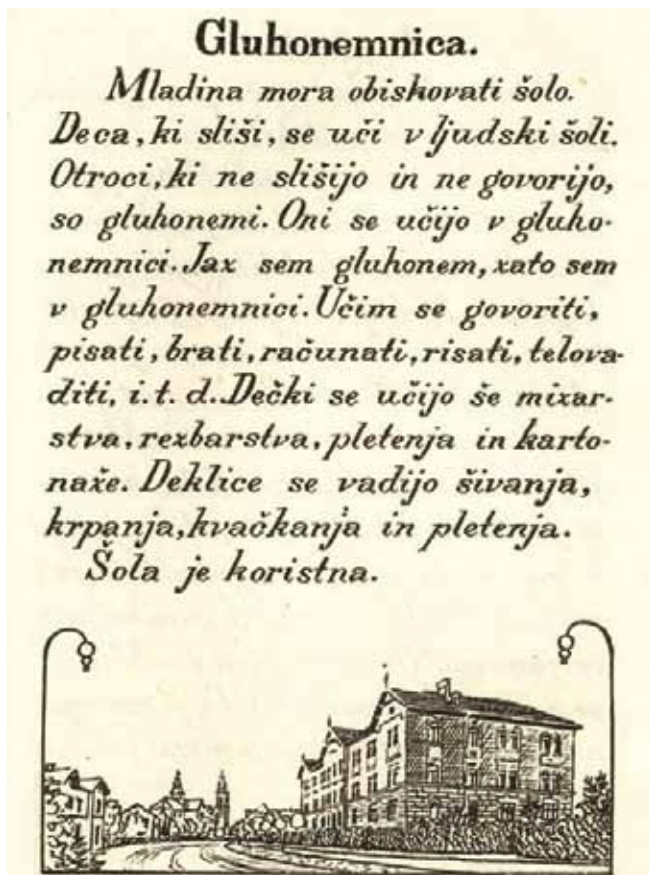 Gluhonemnica.
Mladina mora obiskovati šolo.
Deca, ki sliši, se uči v ljudski šoli.
Otroci, ki ne slišijo in ne govorijo,
so gluhonemi. Oni se učijo v gluho-
nemnici. Jaz sem gluhonem, zato sem
v gluhonemnici. Učim se govoriti,
pisati, brati, računati, risati, telova-
diti, i. t. d.. Dečki se učijo še mizar-
stva, rezbarstva, pletenja in karto-
naže. Deklice se vadijo šivanja,
krpanja, kvačkanja in pletenja.
Šola je koristna.